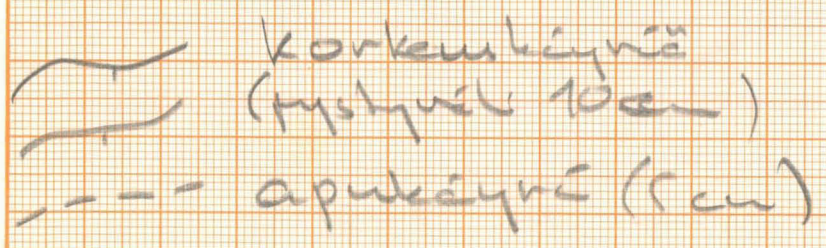 korkeuskäyriä
(pystyväli 10 cm)
apukäyrä (5 cm)